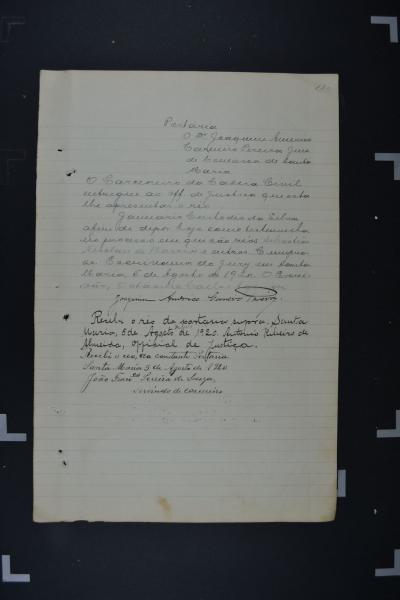 Portaria
O Dr Joaquim Americo
Carneiro Pereira Juiz
da Comarca de Santa
Maria
O Carcereiro da Cadeia Civil
entregue ao off. de Justiça que esta
lhe apresentar o réo
Januario Custodio da Silva
afim de depor hoje como testemunha
no processo em que são réos
e outros. Cumpra-
se. Escrivania do Jury em Santa
Maria 5 de Agosto de 1920. O Escri-
vão,
Joaquim Americo Carneiro Pereira
Recibi o réo da portaria supra, Santa
Maria, 5 de Agosto de 1920. Antonio Ribeiro de
Almeida, Official de Justiça.
Recebi o réo, constante Portaria
Santa Maria 5 de Agosto de 1920
João Franco Pereira de Souza,
servindo de carcereiro